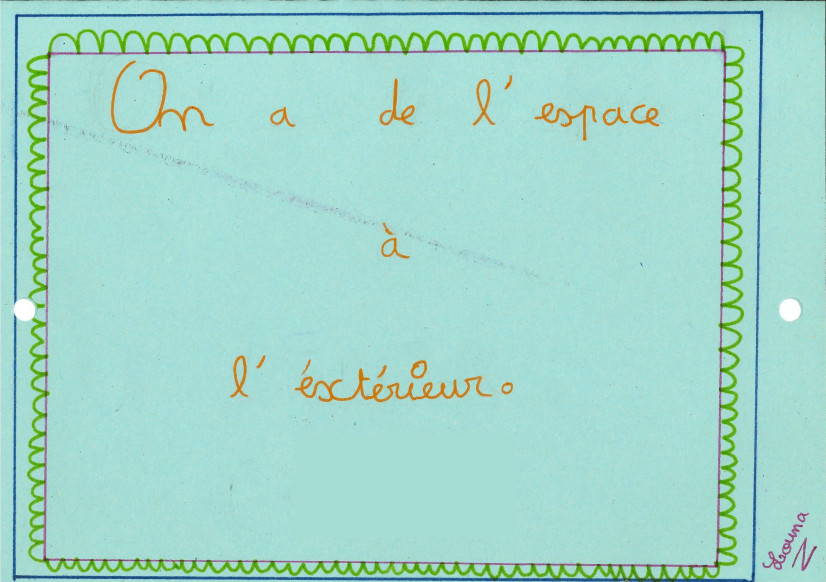 On a de l'espace
à
l'éxtérieur.
Louna
N